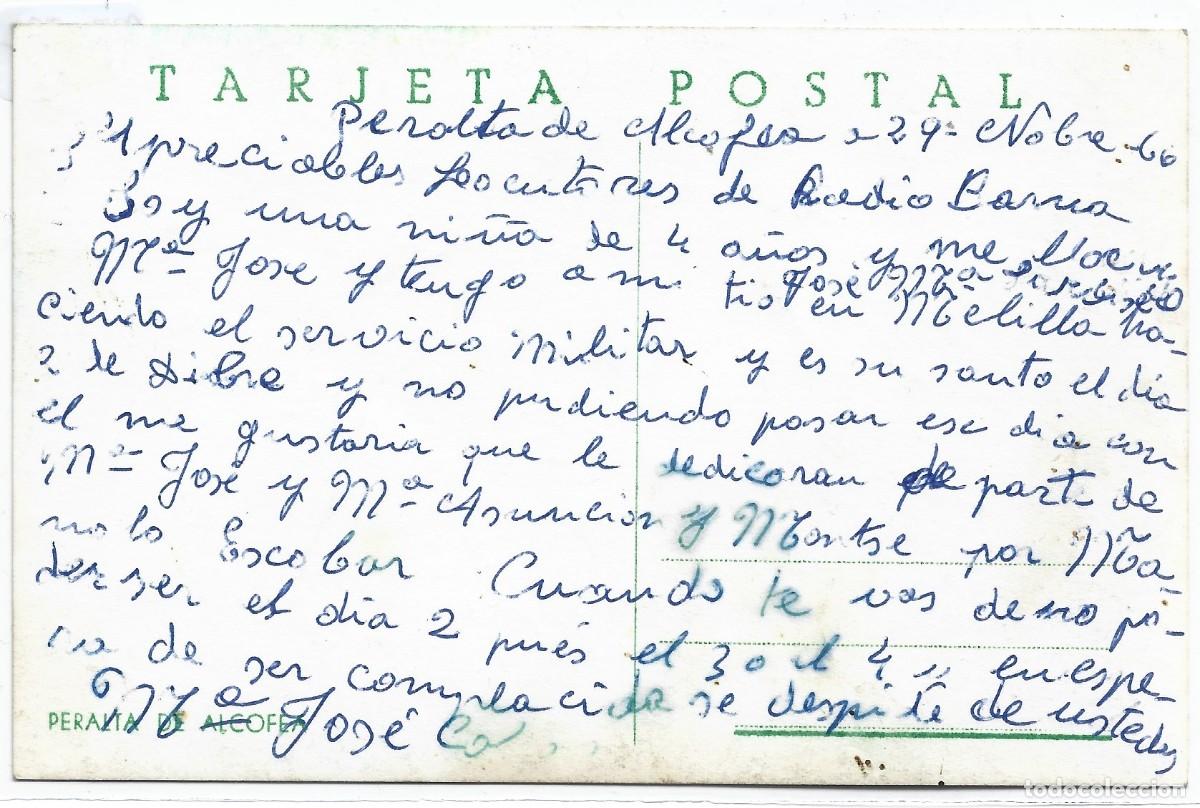 TARJETA POSTAL
Peralta de Alcofea a 29- Nobre -60
Apreciables Locutores de Radio Barna
Soy una niña de 4 años y me llamo
Mª Jose y tengo a mi tio José Mª
en Melilla ha-
ciendo el servicio Militar y es su santo el día
2 de Dibre y no pudiendo pasar ese dia con
el me gustaria que le dedicoran de parte de
Mª José y Mª Asunción y Montse por Ma-
nolo Escobar Cuando te vas de no po-
der ser el día 2 pués el 3 o el 4 ,, en espe-
ra de ser complacida se despide de ustedes
Mª José
PERALTA DE ALCOFEA
todocoleccion